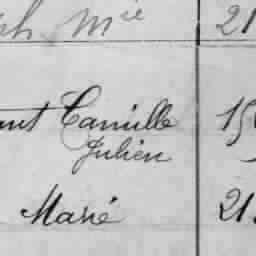 ph Mie 21
Camille 15
Julien
Marié 21